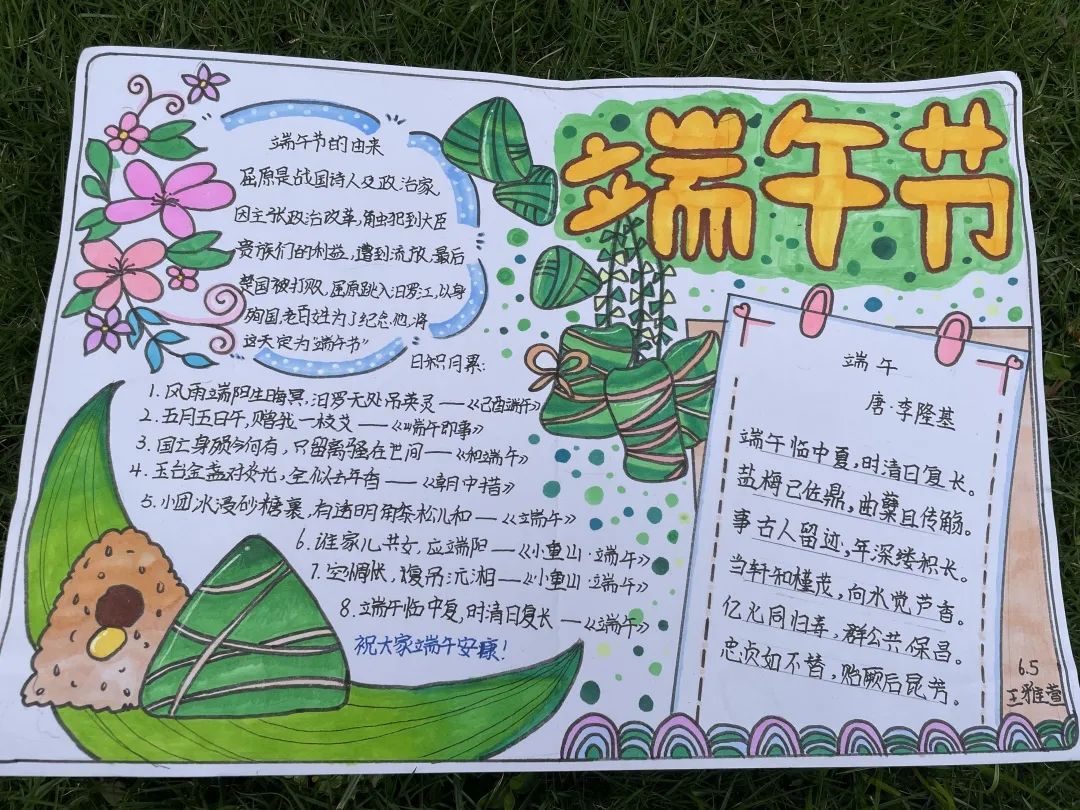 端午节
端午节的由来
屈原是战国诗人及政治家
因主张政治改革,触犯到大臣
贵族们的利益,遭到流放,最后
楚国被打败,屈原跳入汨罗江,以身
殉国,老百姓为了纪念他,将
这天定为"端午节"
日积月累:
1. 风雨端阳生晦冥,汨罗无处吊英灵——《己酉端午》
2. 五月五日午,赠我一枝艾——《端午即事》
3. 国亡身殒今何有,只留离骚在世间——《和端午》
4. 玉台金盏对炎光,全似去年香——《朝中措》
5. 小团冰浸砂糖裹,有透明角黍松儿和——《端午》
6. 谁家儿共女,应端阳——《小重山·端午》
7. 空惆怅,復吊沅湘——《小重山·端午》
8. 端午临中夏,时清日复长——《端午》
祝大家端午安康!
端午
唐·李隆基
端午临中夏,时清日复长。
盐梅已佐鼎,曲糵且传觞。
事古人留迹,年深缕积长。
当轩知槿茂,向水觉芦香。
亿兆同归寿,群公共保昌。
忠贞如不替,贻厥后昆芳。
6.5
王雅萱